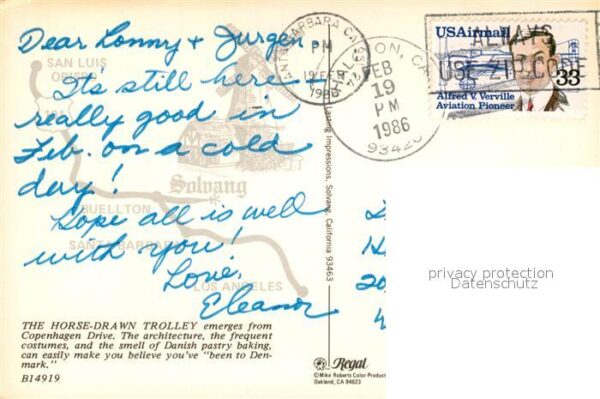 Dear Lonny + Jurgen –
It's still here –
really good in
Feb. on a cold
day!
Hope all is well
with you!
Love,
Eleanor
SAN LUIS
OBISPO
Solvang
BUELLTON
SANTA BARBARA
LOS ANGELES
THE HORSE-DRAWN TROLLEY emerges from
Copenhagen Drive. The architecture, the frequent
costumes, and the smell of Danish pastry baking,
can easily make you believe you've "been to Den-
mark."
B14919
Lasting Impressions, Solvang, California 93463
Regal
©Mike Roberts Color Product
Oakland, CA 94623
SANTA BARBARA CA
PM
19 FEB
1986
FEB
19
PM
1986
93420
ALWAYS
USE ZIP CODE
USAirmail
33
Alfred V. Verville
Aviation Pioneer
20
privacy protection
Datenschutz